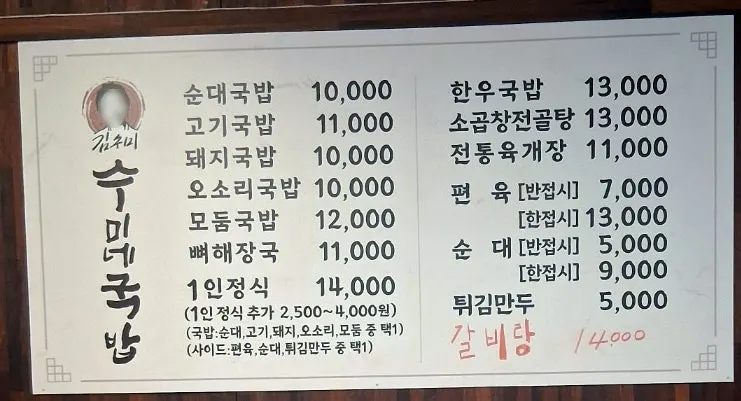 김수미
수미네국밥
순대국밥 10,000
고기국밥 11,000
돼지국밥 10,000
오소리국밥 10,000
모둠국밥 12,000
뼈해장국 11,000
1인정식 14,000
(1인 정식 추가 2,500~4,000원)
(국밥:순대,고기,돼지,오소리,모둠 중 택1)
(사이드:편육,순대,튀김만두 중 택1)
한우국밥 13,000
소곱창전골탕 13,000
전통육개장 11,000
편 육 [반접시] 7,000
[한접시] 13,000
순 대 [반접시] 5,000
[한접시] 9,000
튀김만두 5,000
갈비탕 14000